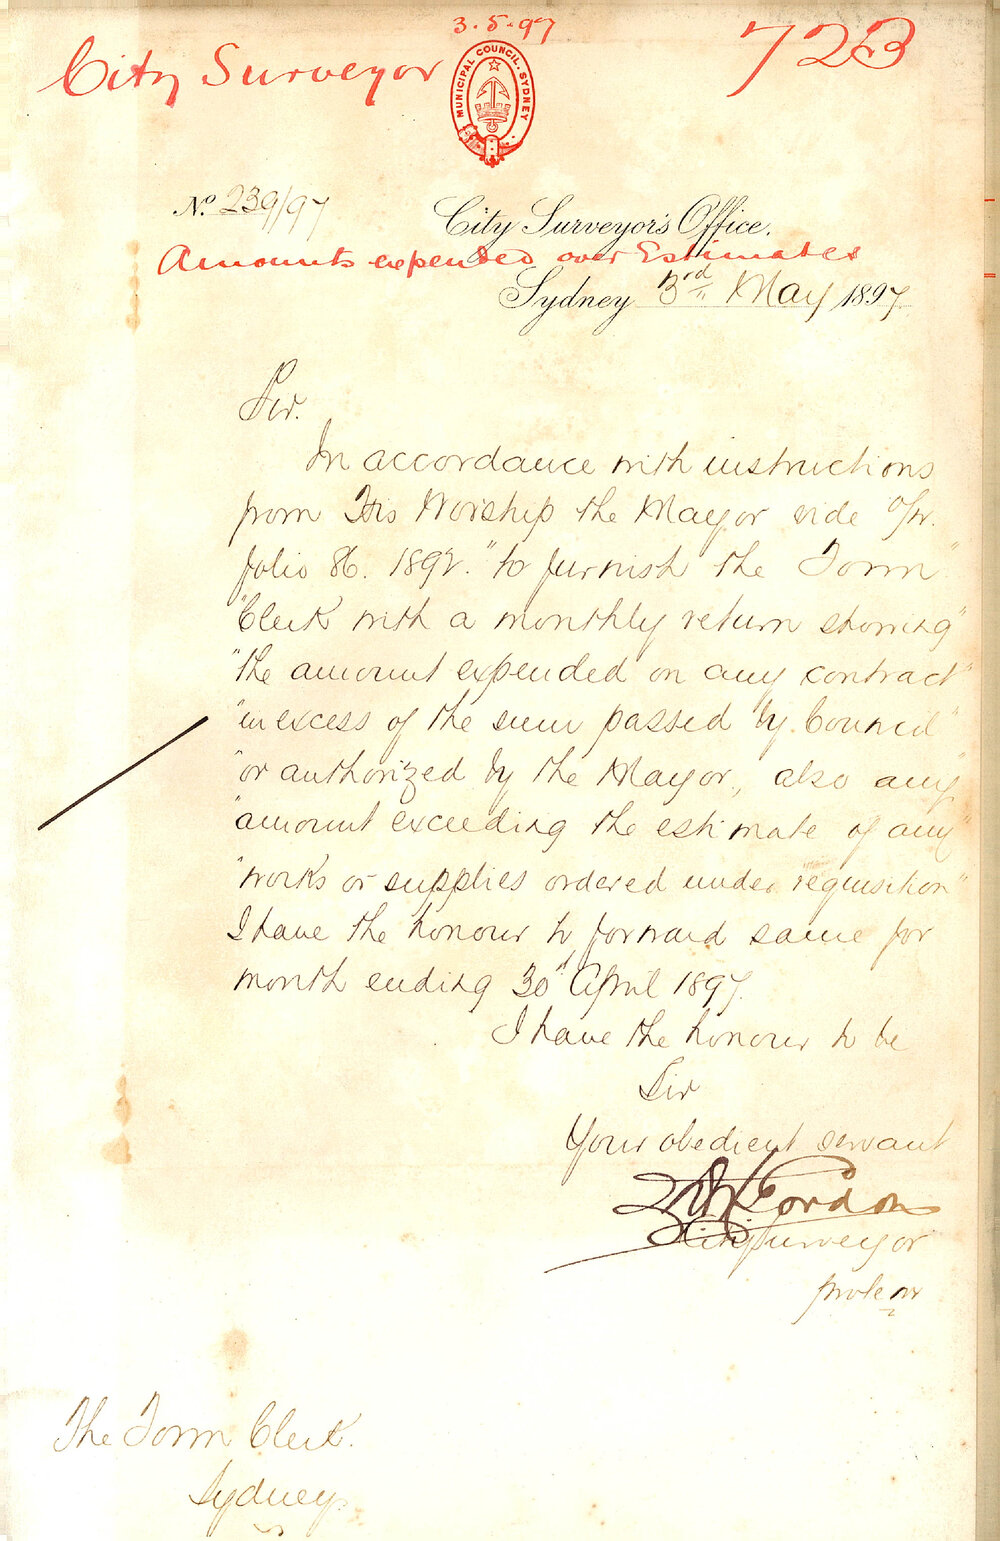 3.5.97
City Surveyor
723
MUNICIPAL COUNCIL. SYDNEY
No. 239/97
City Surveyor's Office.
Amounts expended over Estimates
Sydney 3rd May 1897
Sir.
In accordance with instructions
from His Worship the Mayor vide
folio 86. 1892. "to furnish the Town"
"Clerk with a monthly return showing"
"the amount expended on any contract"
"in excess of the sum passed by Council"
"or authorized by the Mayor, also any"
"amount exceeding the estimate of any"
"works or supplies ordered under requisition"
I have the honour to forward same for
month ending 30th April 1897.
I have the honour to be
Sir
Your obedient servant
Gordon
City Surveyor
protem
The Town Clerk.
Sydney.